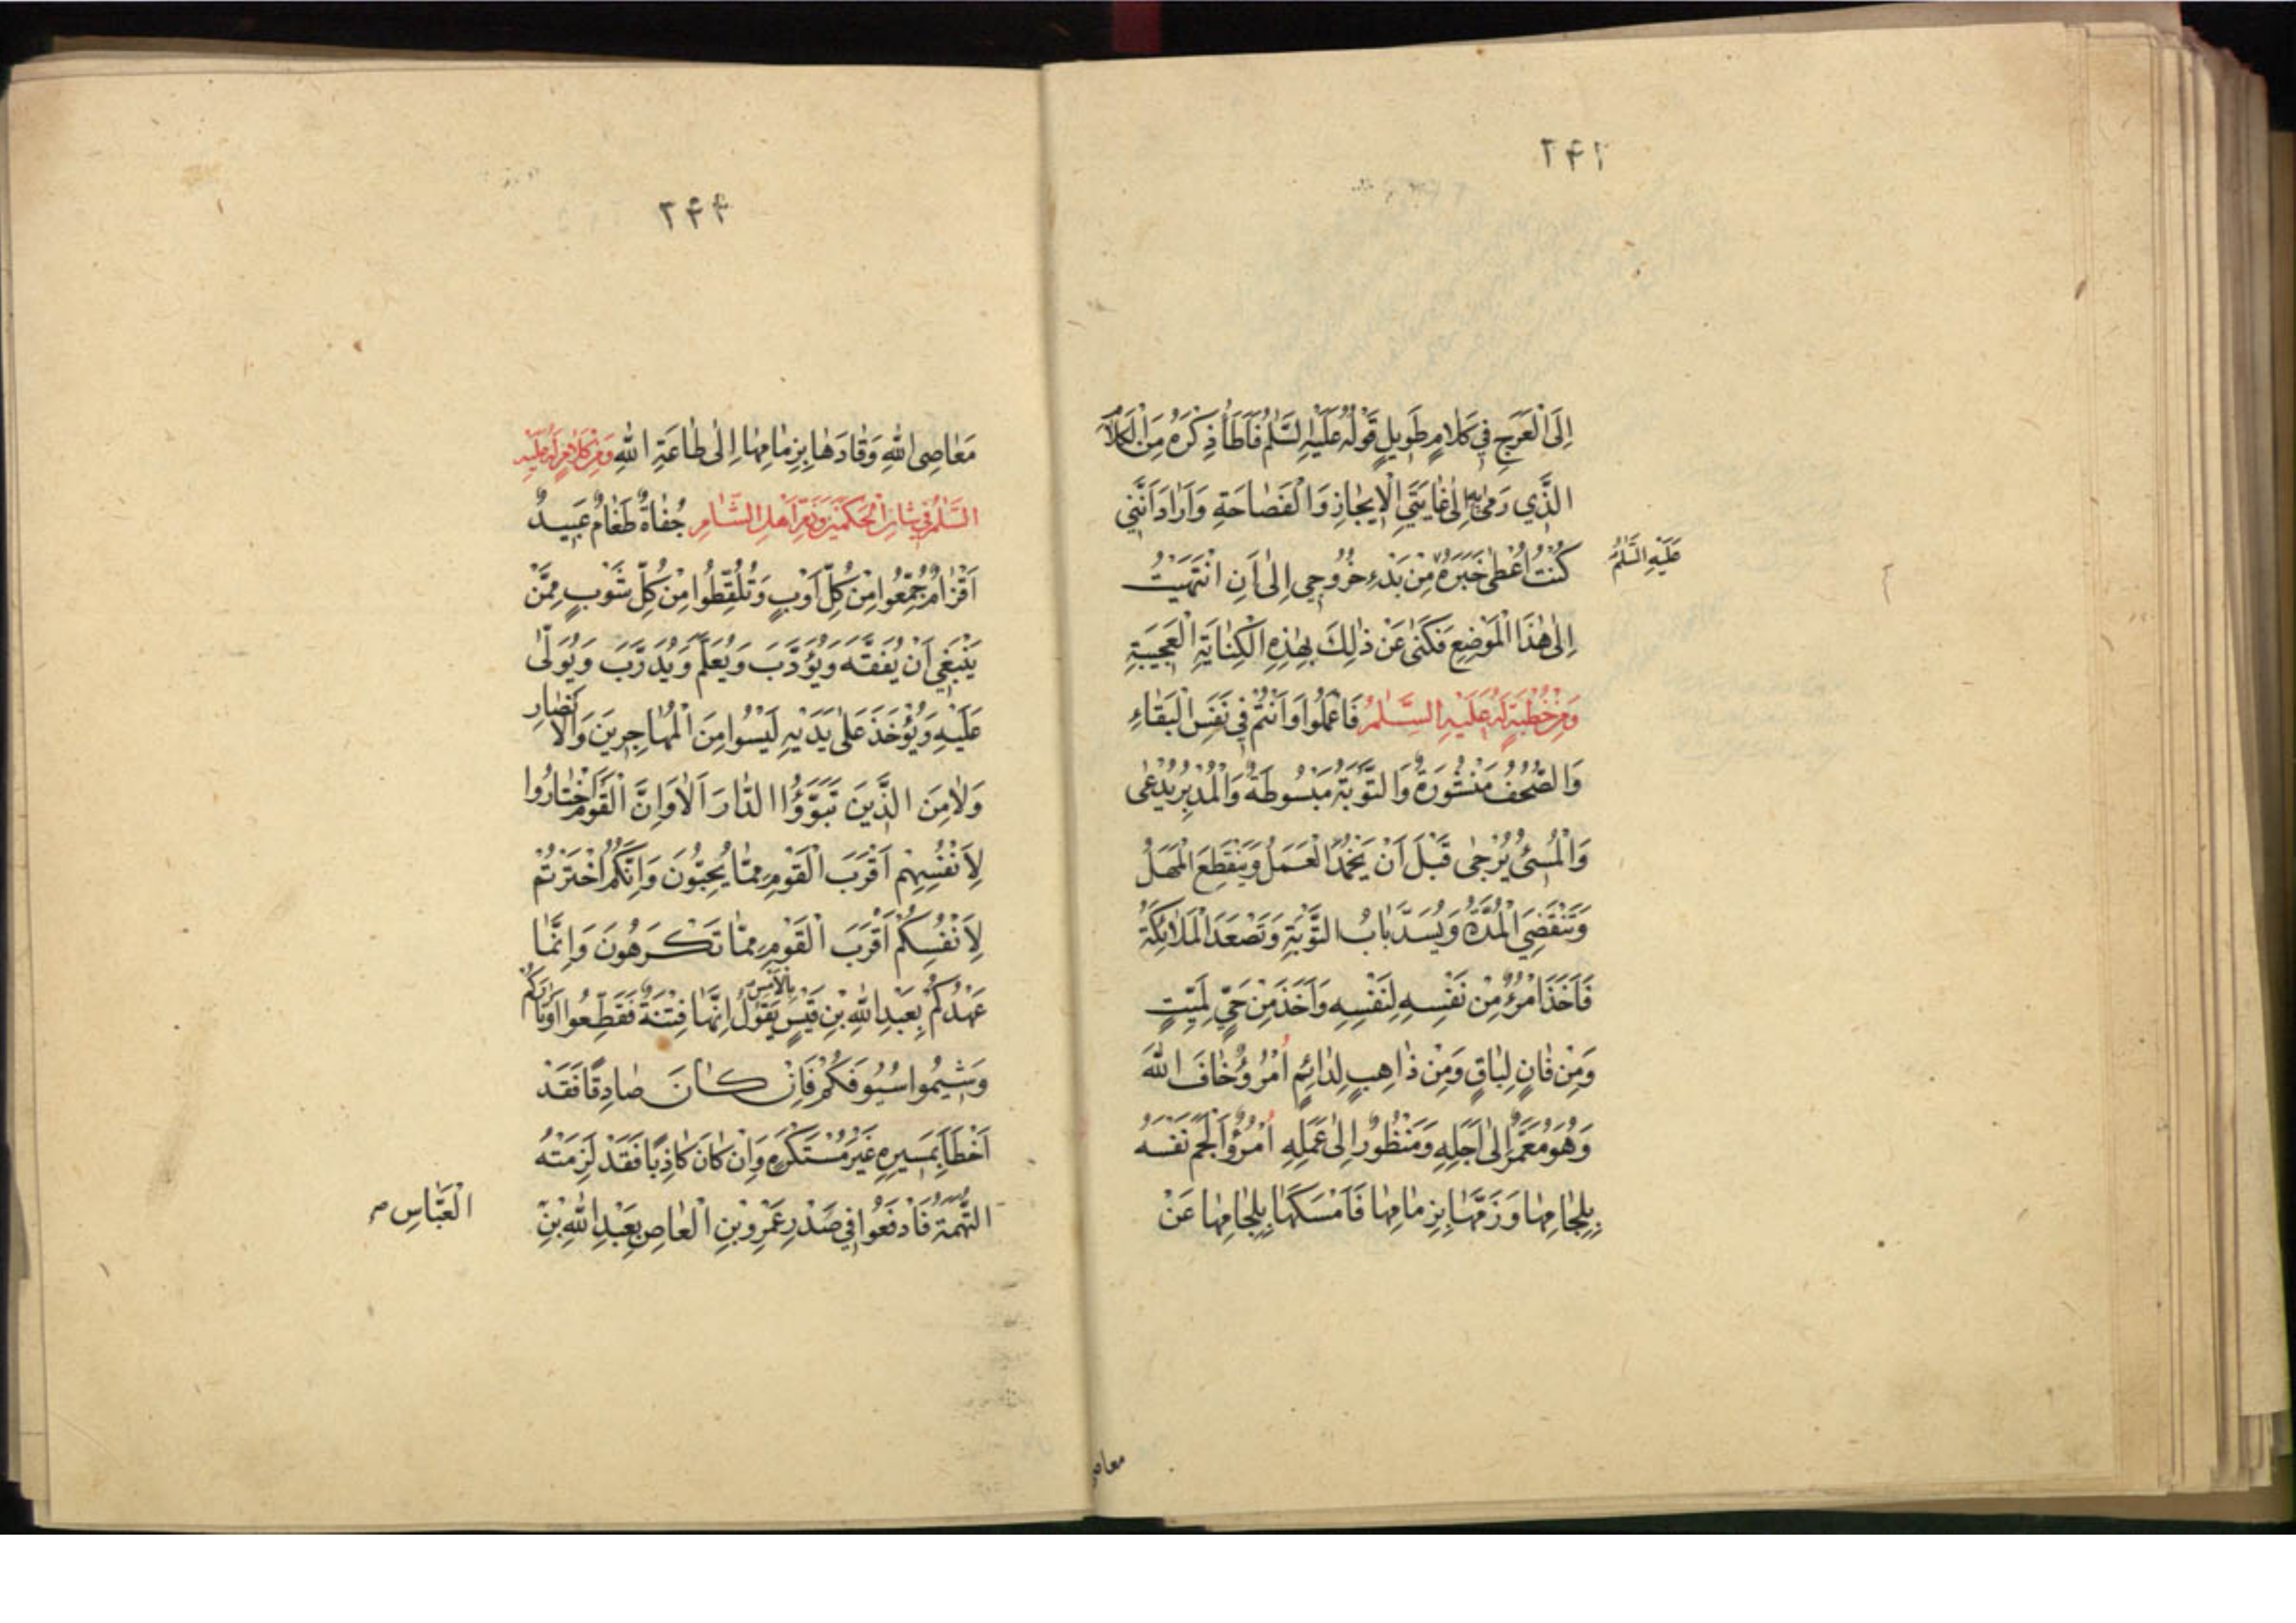 ۲۴۲
إِلَى الْعَرَجِ فِي كَلَامٍ طَوِيلٍ قَوْلُهُ عَلَيْهِ السَّلٰمُ فَأَطَأُ ذِكْرَهُ مِنَ الْكَلَامِ
الَّذِي رَمٰى بِهِ إِلٰى غَايَتَيِ الْإِيجَازِ وَالْفَصَاحَةِ وَأَرَادَ أَنَّنِي
كُنْتُ أُعْطٰى خَبَرَهُ مِنْ بَدْءِ خُرُوجِي إِلٰى أَنِ انْتَهَيْتُ
عَلَيْهِ السَّلٰمُ
إِلٰى هٰذَا الْمَوْضِعِ فَكَنٰى عَنْ ذٰلِكَ بِهٰذِهِ الْكِنَايَةِ الْعَجِيبَةِ
وَمِنْ خُطْبَةٍ لَهُ عَلَيْهِ السَّلٰمُ فَاعْمَلُوا وَأَنْتُمْ فِي نَفَسِ الْبَقَاءِ
وَالصُّحُفُ مَنْشُورَةٌ وَالتَّوْبَةُ مَبْسُوطَةٌ وَالْمُدْبِرُ يُدْعٰى
وَالْمُسِيْءُ يُرْجٰى قَبْلَ أَنْ يَخْمُدَ الْعَمَلُ وَيَنْقَطِعَ الْمَهَلُ
وَتَنْقَضِيَ الْمُدَّةُ وَيُسَدَّ بَابُ التَّوْبَةِ وَتَصْعَدَ الْمَلَائِكَةُ
فَأَخَذَ امْرُءٌ مِنْ نَفْسِهِ لِنَفْسِهِ وَأَخَذَ مِنْ حَيٍّ لِمَيِّتٍ
وَمِنْ فَانٍ لِبَاقٍ وَمِنْ ذَاهِبٍ لِدَائِمٍ امْرُؤٌ خَافَ اللّٰهَ
وَهُوَ مُعَمَّرٌ إِلٰى أَجَلِهِ وَمَنْظُورٌ إِلٰى عَمَلِهِ امْرُؤٌ أَلْجَمَ نَفْسَهُ
بِلِجَامِهَا وَزَمَّهَا بِزِمَامِهَا فَأَمْسَكَهَا بِلِجَامِهَا عَنْ
معاصی
۲۴۴
مَعَاصِي اللّٰهِ وَقَادَهَا بِزِمَامِهَا إِلٰى طَاعَةِ اللّٰهِ وَمِنْ كَلَامٍ لَهُ عَلَيْهِ
السَّلٰمُ فِي شَانِ الْحَكَمَيْنِ وَذَمِّ أَهْلِ الشَّامِ جُفَاةٌ طَغَامٌ عَبِيدٌ
أَقْزَامٌ جُمِّعُوا مِنْ كُلِّ أَوْبٍ وَتُلُقِّطُوا مِنْ كُلِّ شَوْبٍ مِمَّنْ
يَنْبَغِي أَنْ يُفَقَّهَ وَيُؤَدَّبَ وَيُعَلَّمَ وَيُدَرَّبَ وَيُوَلّٰى
عَلَيْهِ وَيُؤْخَذَ عَلٰى يَدَيْهِ لَيْسُوا مِنَ الْمُهَاجِرِينَ وَالْأَنْصَارِ
وَلَا مِنَ الَّذِينَ تَبَوَّؤُا الدَّارَ أَلَا وَإِنَّ الْقَوْمَ اخْتَارُوا
لِأَنْفُسِهِمْ أَقْرَبَ الْقَوْمِ مِمَّا يُحِبُّونَ وَإِنَّكُمْ اخْتَرْتُمْ
لِأَنْفُسِكُمْ أَقْرَبَ الْقَوْمِ مِمَّا تَكْرَهُونَ وَإِنَّمَا
عَهْدُكُمْ بِعَبْدِ اللّٰهِ بْنِ قَيْسٍ بِالْأَمْسِ يَقُولُ إِنَّهَا فِتْنَةٌ فَقَطِّعُوا أَوْتَارَكُمْ
وَشِيمُوا سُيُوفَكُمْ فَإِنْ كَانَ صَادِقًا فَقَدْ
أَخْطَأَ بِمَسِيرِهِ غَيْرَ مُسْتَكْرَهٍ وَإِنْ كَانَ كَاذِبًا فَقَدْ لَزِمَتْهُ
التُّهَمَةُ فَادْفَعُوا فِي صَدْرِ عَمْرِو بْنِ الْعَاصِ بِعَبْدِ اللّٰهِ بْنِ
الْعَبَّاسِ